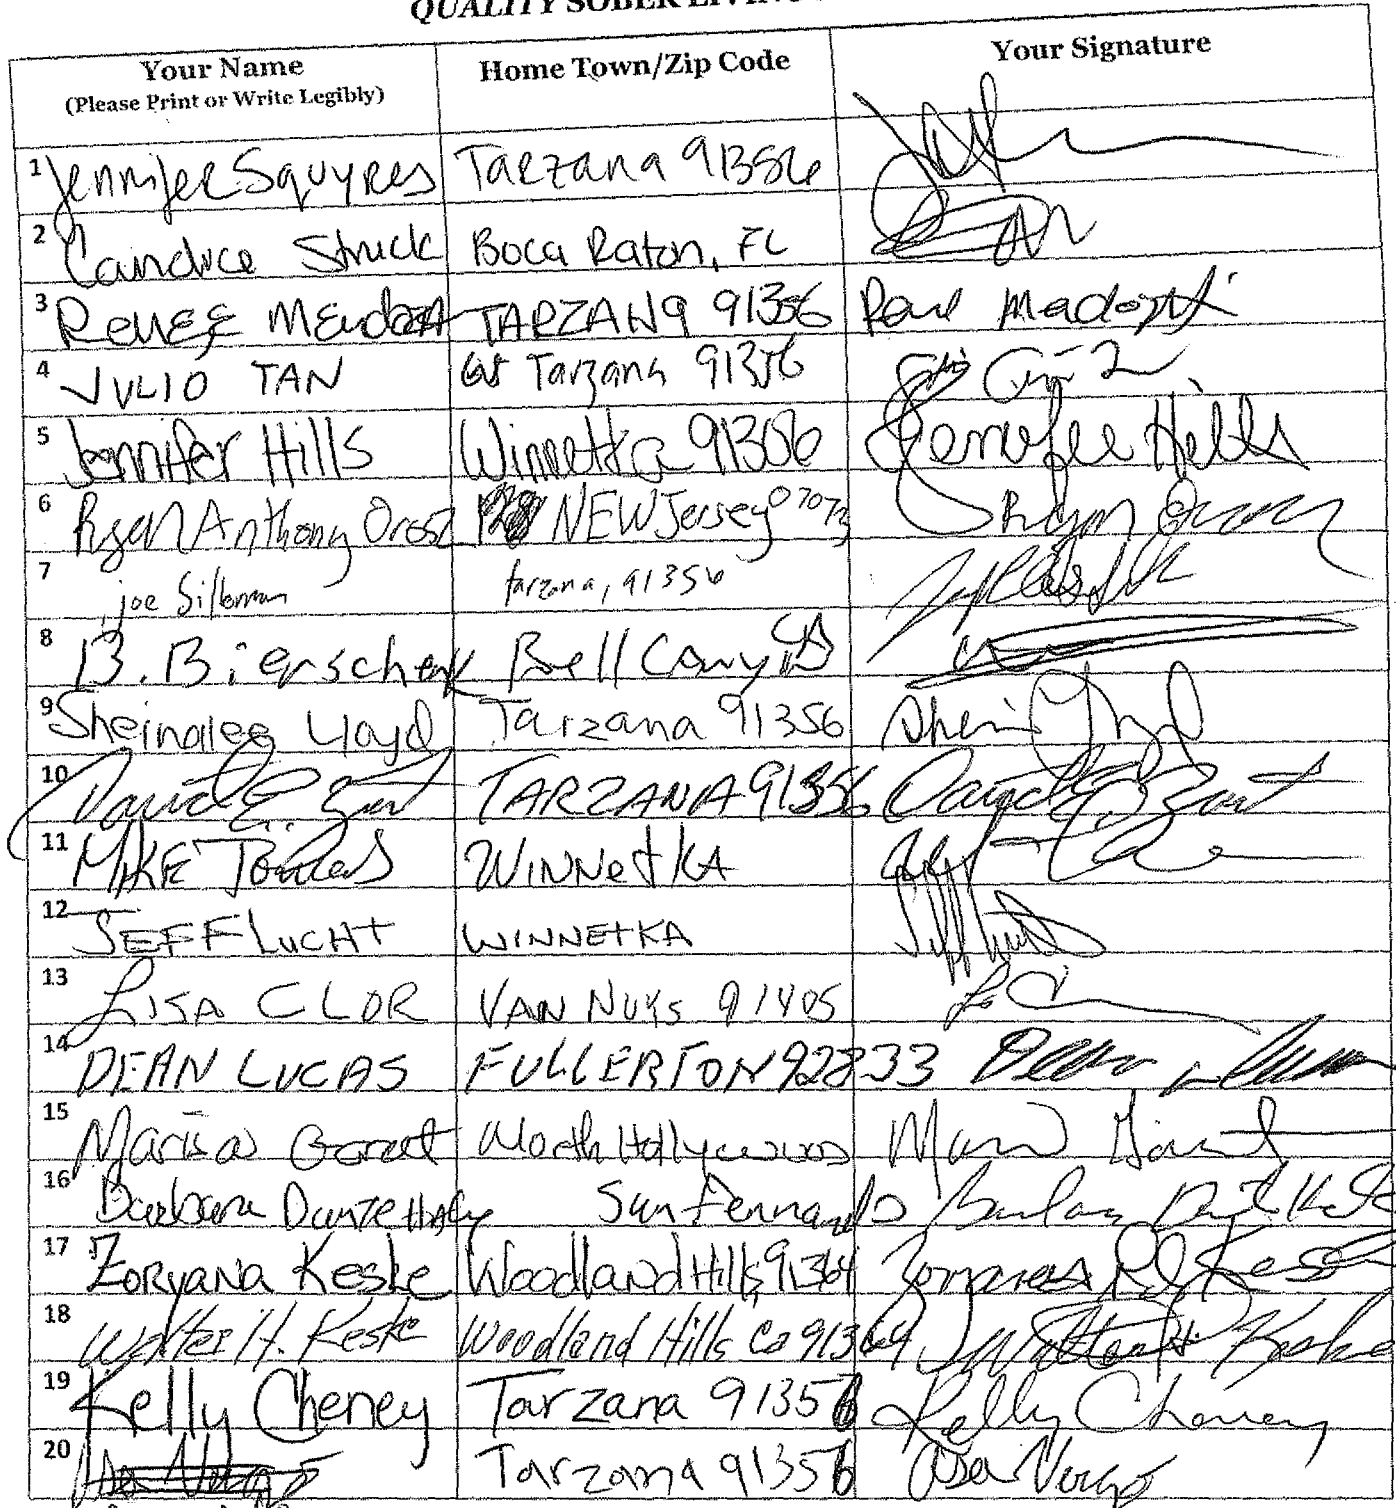 QUALITY SOBER LIVING
Your Name Home Town/Zip Code Your Signature
(Please Print or Write Legibly)
1 Jennifer Squyres Tarzana 91356
2 Candice Struck Boca Raton, FL
3 Renee TARZANA 91356
4 JULIO TAN Tarzana 91356
5 Jennifer Hills Winnetka 91306 Jennifer Hills
6 Ryan Anthony Orosz NEW Jersey 07073 Ryan
7 joe Silberman tarzana, 91356
8 B. Bierschenk Bell Canyon
9 Sheinalee Lloyd Tarzana 91356
10 David TARZANA 91356 David
11 MIKE WINNetKA
12 JEFF LUCHT WINNETKA
13 LISA CLOR VAN NUYS 91405
14 DEAN LUCAS FULLERTON 92833
15 Marisa North Hollywood
16 Barbara San Fernando Barbara
17 Zoryana Keske Woodland Hills, 91364 Keske
18 Walter H. Keske Woodland Hills Ca 91364 Walter H Keske
19 Kelly Cheney Tarzana 91356 Kelly Cheney
20 Tarzana 91356